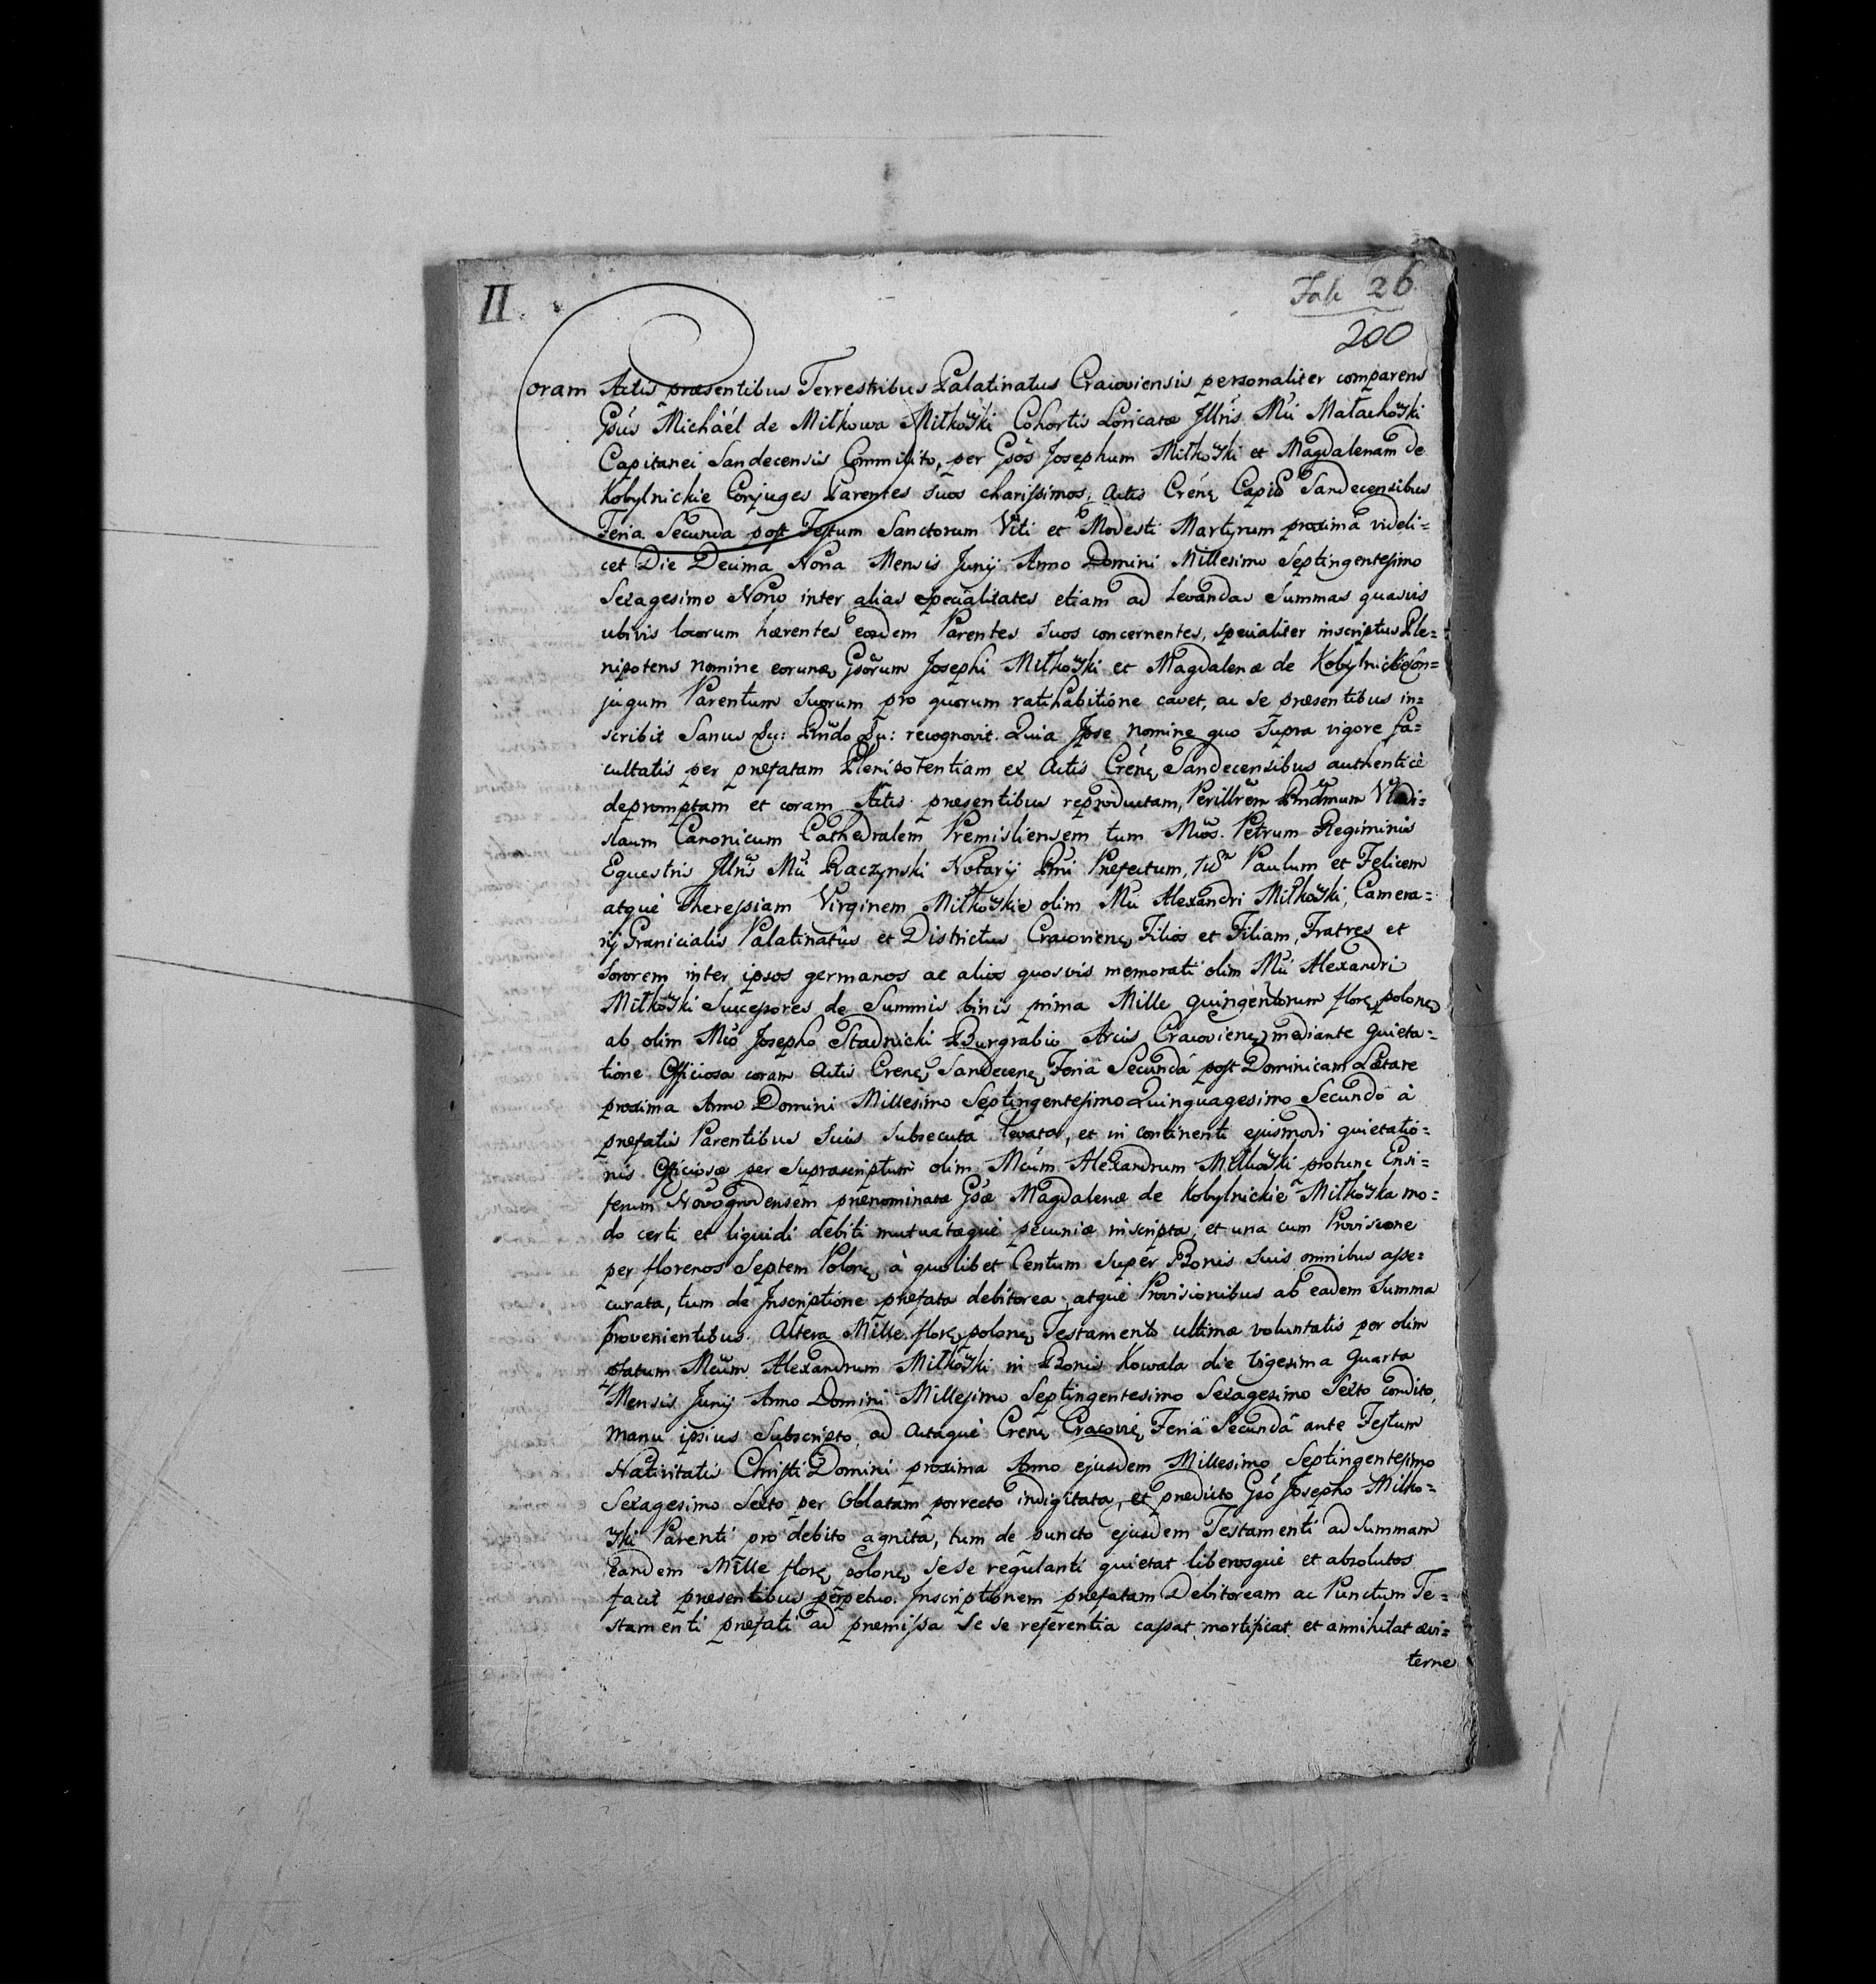 II.
Fasc 26
200
Coram Actis præsentibus Terrestribus Palatinatus Cracoviensis personaliter comparens
Gsus Michaël de Miłkowa Miłkowski Cohortis Loricatæ Illris Mci Małachowski
Capitanei Sandecensis Commilito, per Gsos Josephum Miłkowski et Magdalenam de
Kobylnickie Conjuges Parentes suos charissimos, Actis Crens Caplibus Sandecensibus
Feria Secunda post Festum Sanctorum Viti et Modesti Martyrum proxima videli=
cet Die Decima Nona Mensis Junij Anno Domini Millesimo Septingentesimo
Sexagesimo Nono inter alias specialitates etiam ad levandas Summas quasvis
ubivis locorum hærentes eosdem Parentes suos concernentes, specialiter inscriptus Ple=
nipotens nomine eorundem Gsorum Josephi Miłkowski et Magdalenæ de Kobylnickie Con=
jugum Parentum Suorum pro quorum ratihabitione cavet, ac se præsentibus in=
scribit Sanus &: recognovit. Quia Ipse nomine quo supra vigore fa=
cultatis per præfatam Plenipotentiam ex Actis Crens Sandecensibus authenticè
depromptam et coram Actis præsentibus reproductam, Perillrem Rndmum Vladi=
slaum Canonicum Cathedralem Premisliensem tum Mcos Petrum Regiminis
Equestris Illris Mci Raczynski Notarij Rni Præfectum, Paulum et Felicem
atque Theressiam Virginem Miłkowskie olim Mci Alexandri Miłkowski, Camera=
rij Granicialis Palatinatus et Districtus Cracoviens Filios et Filiam, Fratres et
Sororem inter ipsos germanos ac alios quosvis memorati olim Mci Alexandri
Miłkowski Successores de Summis binis prima Mille quingentorum florens polons
ab olim Mco Josepho Stadnicki Burgrabio Arcis Cracoviens mediante quieta=
tione Officiosa coram Actis Crens Sandecens Feria Secunda post Dominicam Lætare
proxima Anno Domini Millesimo Septingentesimo Quinquagesimo Secundo à
præfatis Parentibus Suis subsecuta levata, et in continenti ejusmodi quietatio=
nis Officiosæ per Suprascriptum olim Mcum Alexandrum Miłkowski protunc Ensi=
ferum Novogrodensem prænominatæ Gsæ Magdalenæ de Kobylnickie Miłkowska mo=
do certi et liquidi debiti mutuatæque pecuniæ inscripta, et una cum Provisione
per florenos Septem Polons à quolibet Centum super Bonis suis omnibus asse=
curata, tum de Inscriptione præfata debitorea, atque Provisionibus ab eadem Summa
provenientibus. Altera Mille florens polons Testamento ultimæ voluntatis per olim
pfatum Mcum Alexandrum Miłkowski in Bonis Kowala die vigesima quarta
Mensis Junij Anno Domini Millesimo Septingentesimo Sexagesimo Sexto condito,
manu ipsius Subscripto, ad Actaque Crens Cracovie, Feria Secunda ante Festum
Nativitatis Christi Domini proxima Anno ejusdem Millesimo Septingentesimo
Sexagesimo Sexto per Oblatam porrecto indigitata, et prædicto Gso Josepho Miłko=
wski Parenti pro debito agnita, tum de puncto ejusdem Testamenti ad Summam
Eandem Mille florens polons sese regulanti quietat liberosque et absolutos
facit præsentibus perpetuo. Inscriptionem præfatam Debitoream ac Punctum Te=
stamenti præfati ad præmissa Se se referentia cassat mortificat et annihilat ævi=
terne